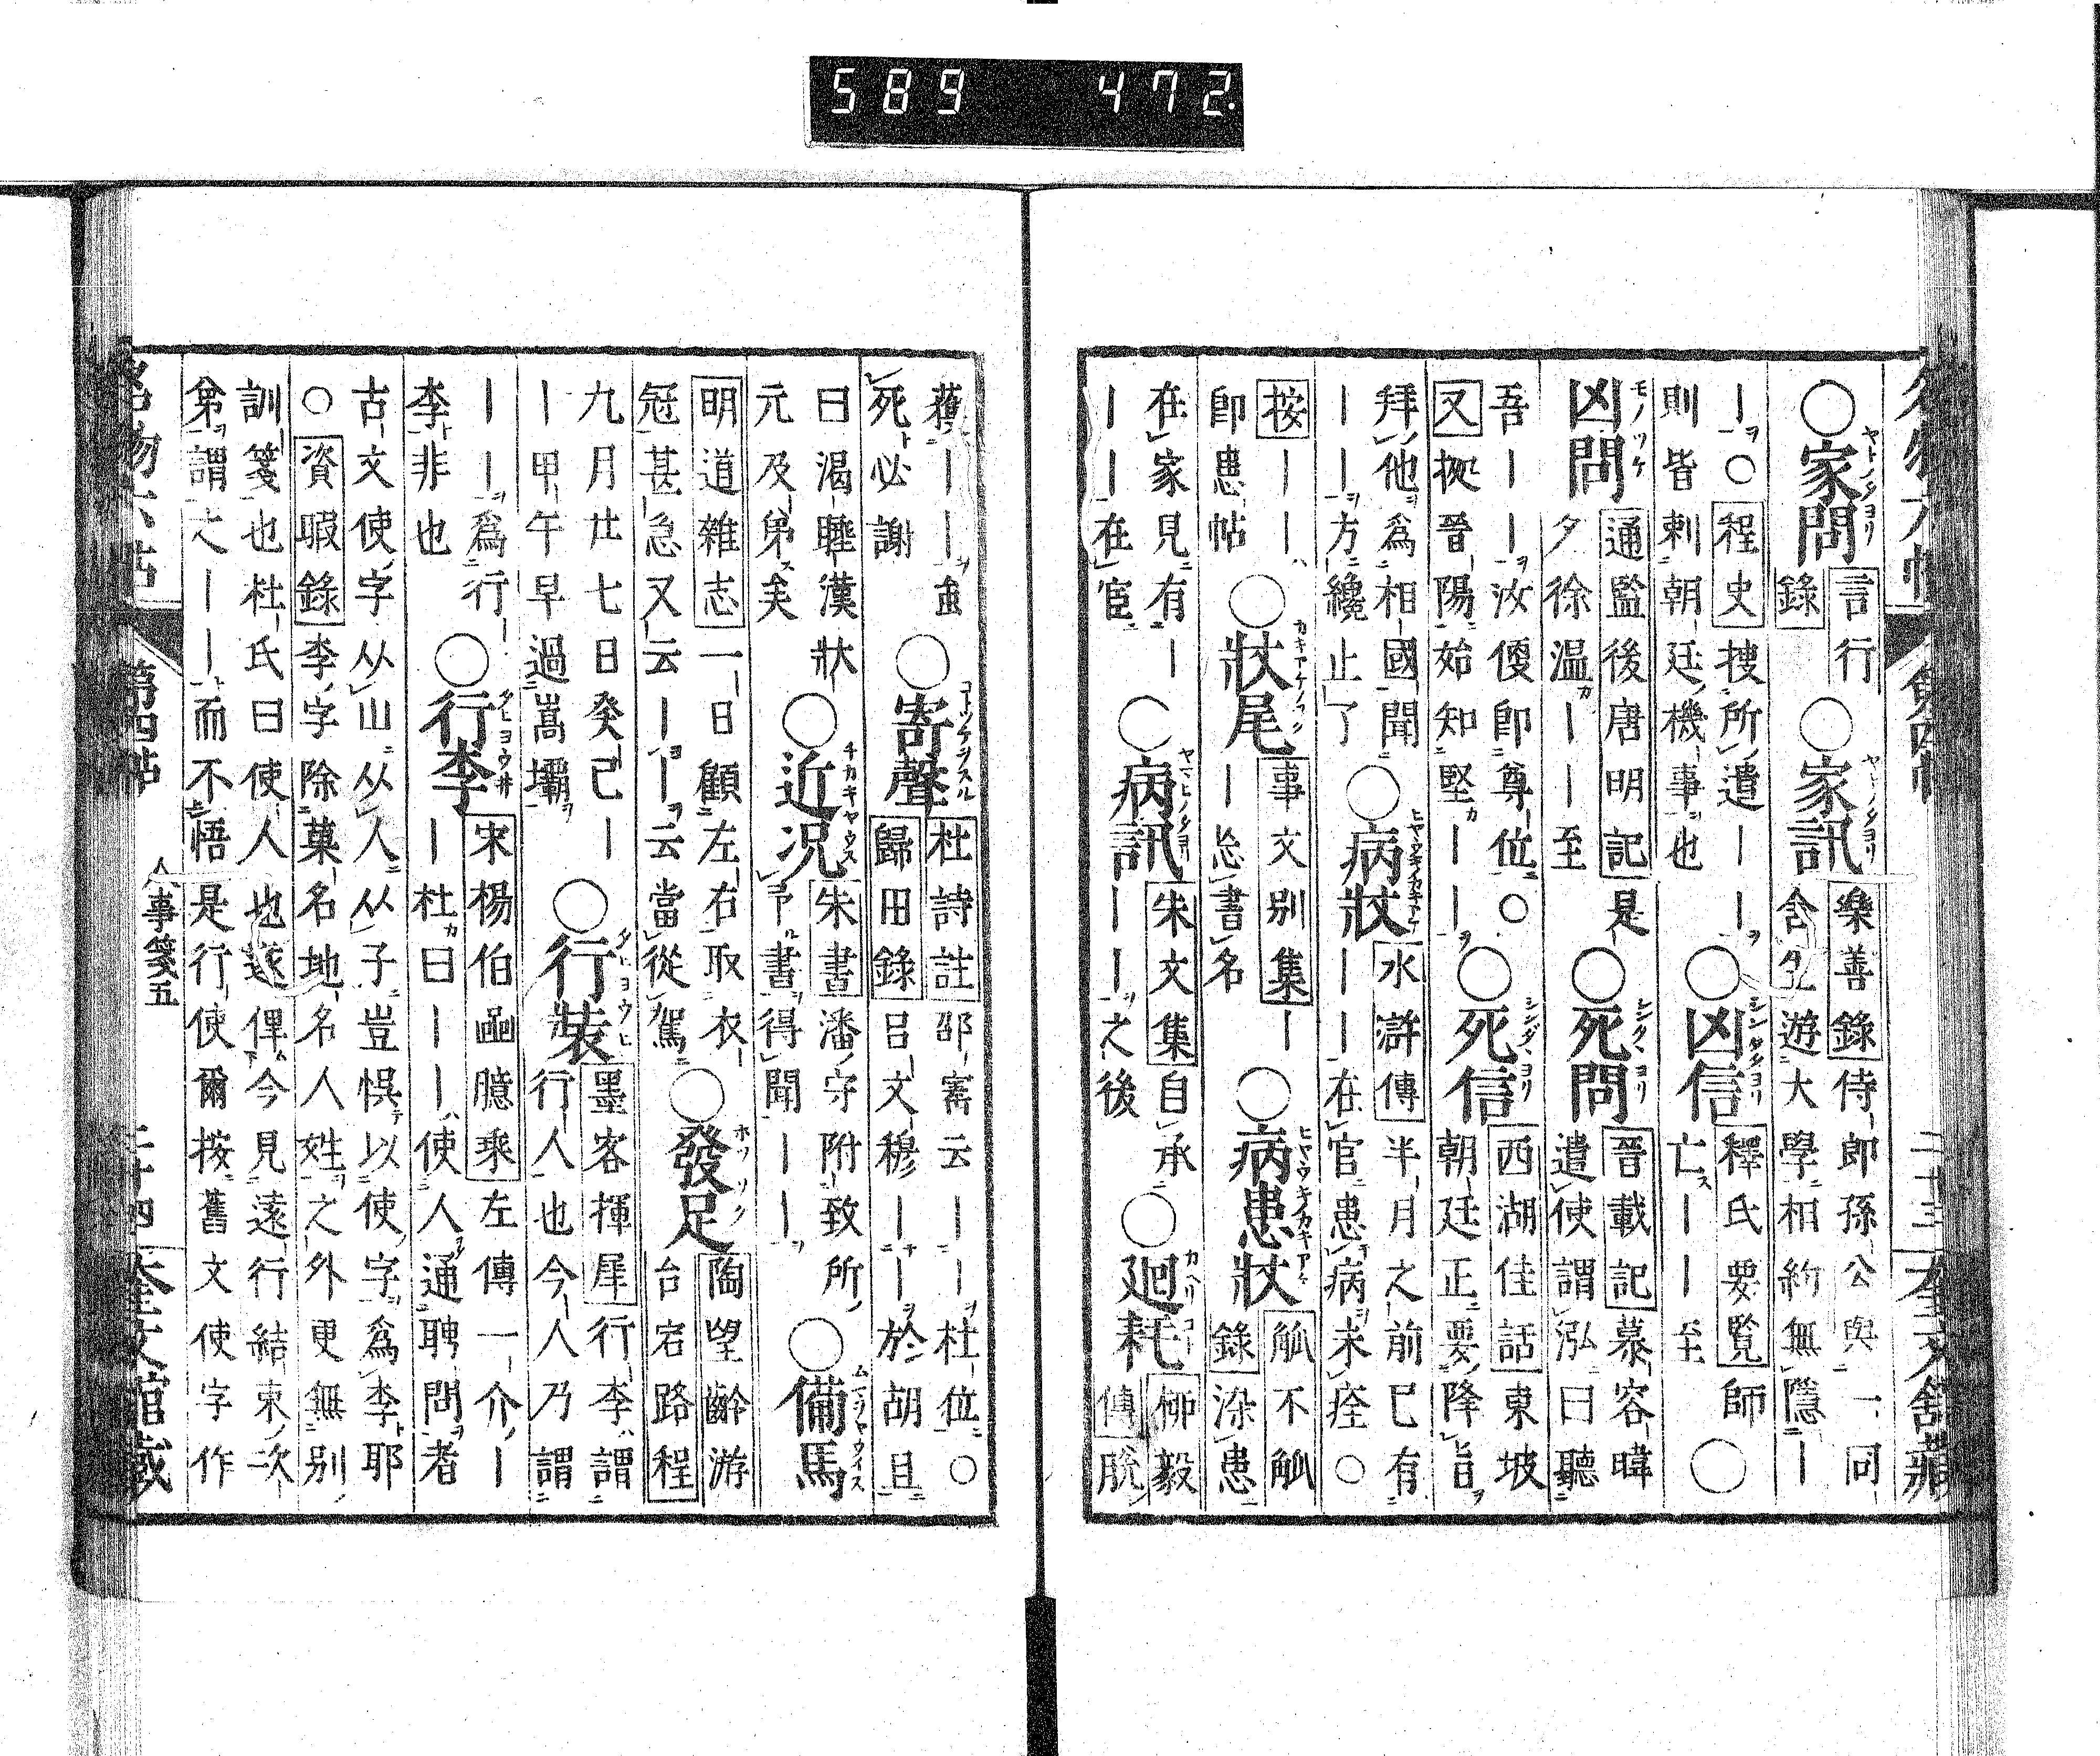 589 472.
第四帖 二十三 奎文舘藏
○家問 ヤドノタヨリ 言行
錄 ○家訊 ヤドノタヨリ 樂善錄 侍郎孫公與一同
舍夕 游大學相約無隱一
一○程史 搜所遣一一 ○凶信 シンダタヨリ 釋氏要覧 師
則皆刺朝廷機事也 亡一一至 ○
凶問 モノツケ 通監後唐明記 是
夕徐温一一至 ○死問 シンダヨリ 晉載記 慕容暐
遣使謂泓曰聽
吾一一汝便卽尊位○ ○死信 シンダヨリ 西湖佳話 東坡
又 晉陽始知堅一一 朝廷正要降旨
拜他爲相國聞 ○病狀 水滸傳 半月之前已有
一一方纔止了 一一在官患病未痊○
按 一一 ○狀尾 事文别集 一
卽患帖 一㤀書名 ○病患狀 觚不觚
錄 染患
在家見有一 ○病訊 朱文集 自承
一一在宦 一一之後 ○廻耗 柳毅
傳 脫
舊一一䖝 ○寄聲 コトツケヲスル 杜詩註 邵寳云一一杜位○
死必謝 歸田錄 呂文穆一一於胡旦
曰渴睡漢狀 ○近况 チカキヤウス 朱書 潘守附致所
元及弟矣 予書得聞一一 ○備馬
明道雜志 一日顧左右取衣 ○發足 ホツソク 陶望齡游
冠甚急又云一一云當從駕 台宕路程
九月廿七日癸巳一 ○行裝 墨客揮犀 行李謂
一甲午早過嵩壩 行人也今人乃謂
一一爲行 ○行李 宋楊伯嵒臆乘 左傳一介一
李非也 一杜曰一一使人通聘問者
古文使字从山从人从子豈悞以使字爲李耶
○資暇錄 李字除菓名地名人姓之外更無别
訓箋也杜氏曰使人也遂俾今見遠行結束次
弟謂之一一而不悟是行使爾按舊文使字作
名物六帖 第四帖 人事箋五 二十四 奎文舘藏